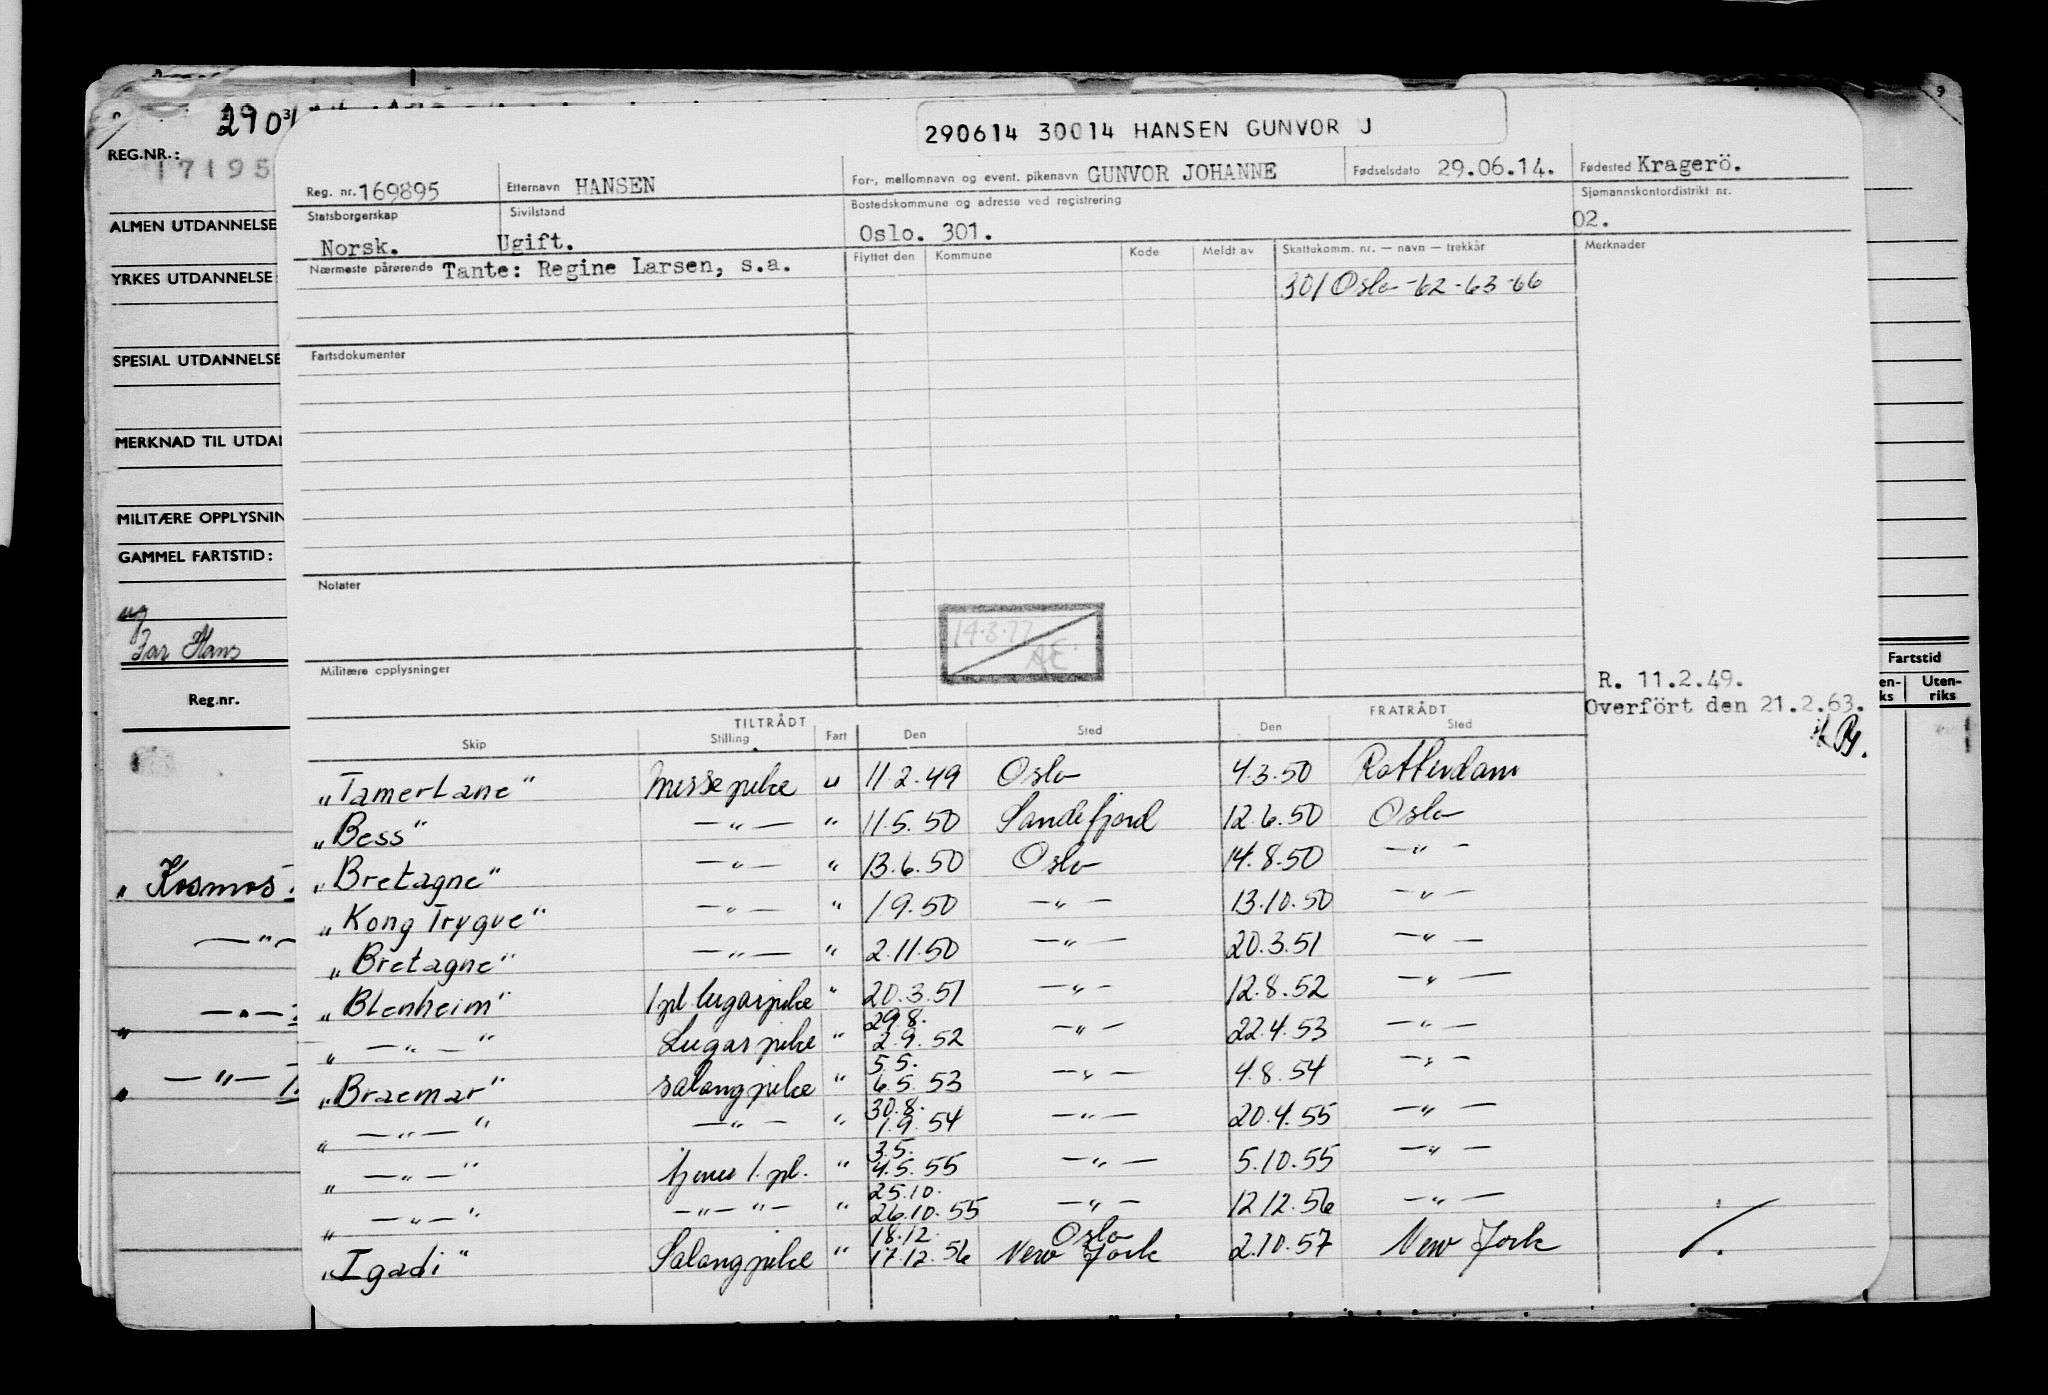 290614 30014 HANSEN GUNVOR J
REG.NR.:
17195
ALMEN UTDANNELSE
YRKES UTDANNELSE
SPESIAL UTDANNELSE
MERKNAD TIL UTDAN
MILITÆRE OPPLYSNIN
GAMMEL FARTSTID:
ug
Far Hans
Reg.nr.
„Kosmos
Fartstid
Uten-
riks
Reg. nr. 169895 Etternavn HANSEN For-, mellomnavn og event. pikenavn GUNVOR JOHANNE Fødselsdato 29.06.14. Fødested Kragerö.
Statsborgerskap Norsk. Sivilstand Ugift. Bostedskommune og adresse ved registrering Oslo. 301. Sjømannskontordistrikt nr. 02.
Nærmeste pårørende Tante: Regine Larsen, s.a. Flyttet den Kommune Kode Meldt av Skattekomm. nr. — navn — trekkår Merknader
301 Oslo -62-63-66
Fartsdokumenter
Notater
14.3.77
AE.
Militære opplysninger
R. 11.2.49.
Overfört den 21.2.63.
TILTRÅDT FRATRÅDT
Skip Stilling Fart Den Sted Den Sted
„Tamerlane" messepike u 11.2.49 Oslo 4.3.50 Rotterdam
„Bess" —"— " 11.5.50 Sandefjord 12.6.50 Oslo
„Bretagne" —"— " 13.6.50 Oslo 14.8.50 —"—
„Kong Trygve" —"— " 1.9.50 —"— 13.10.50 —"—
„Bretagne" —"— " 2.11.50 —"— 20.3.51 —"—
„Blenheim" 1pl lugarpike " 20.3.51 —"— 12.8.52 —"—
29.8.
„—"—" Lugarpike " 2.9.52 —"— 22.4.53 —"—
5.5.
„Braemar" salongpike " 6.5.53 —"— 4.8.54 —"—
30.8.
„—"—" —"— " 1.9.54 —"— 20.4.55 —"—
3.5.
„—"—" 1. pl. " 4.5.55 —"— 5.10.55 —"—
25.10.
„—"—" —"—"— " 26.10.55 —"— 12.12.56 —"—
18.12. Oslo
„Igadi" Salongpike " 17.12.56 New York 2.10.57 New York